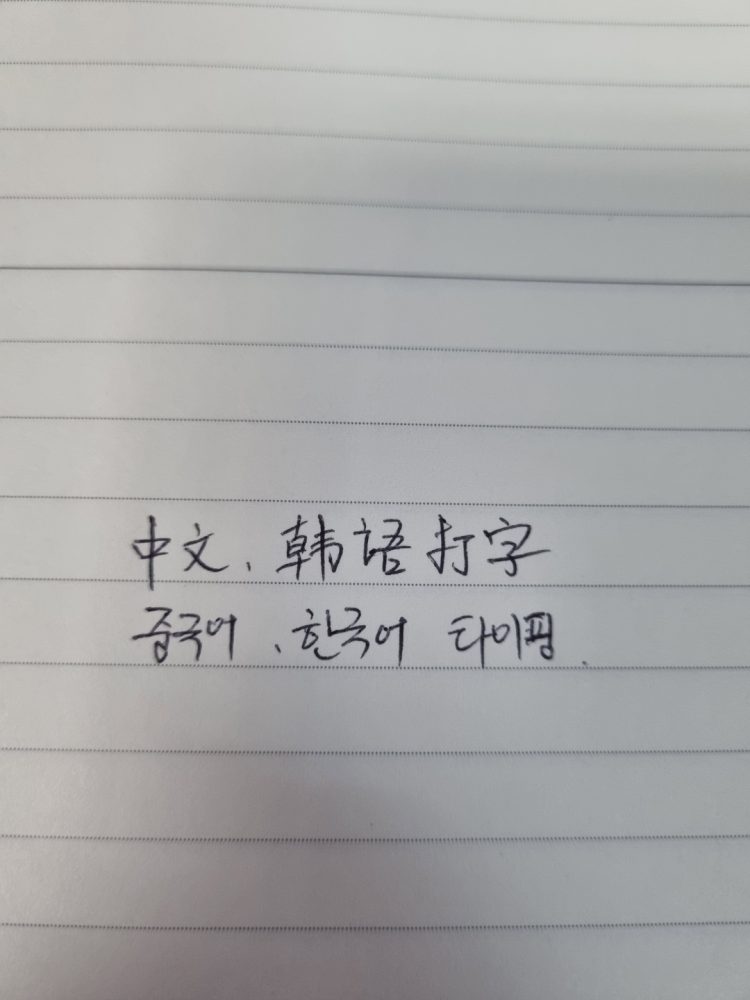 中文、韩语打字
중국어、한국어 타이핑.